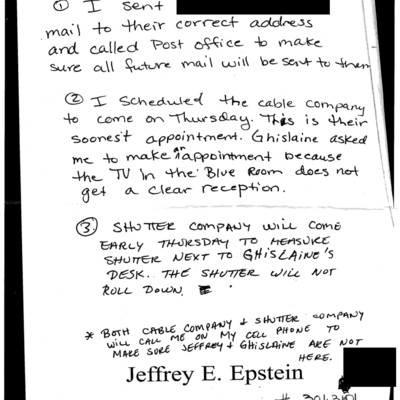 ① I sent
mail to their correct address
and called Post office to make
sure all future mail will be sent to them
② I scheduled the cable company
to come on Thursday. This is their
soonest appointment. Ghislaine asked
me to make an appointment because
the TV in the Blue Room does not
get a clear reception.
③. SHUTTER COMPANY WILL COME
EARLY THURSDAY TO MEASURE
SHUTTER NEXT TO GHISLAINE'S
DESK. THE SHUTTER WILL NOT
ROLL DOWN.
* BOTH CABLE COMPANY & SHUTTER COMPANY
WILL CALL ME ON MY CELL PHONE TO
MAKE SURE JEFFREY & GHISLAINE ARE NOT
HERE.
Jeffrey E. Epstein